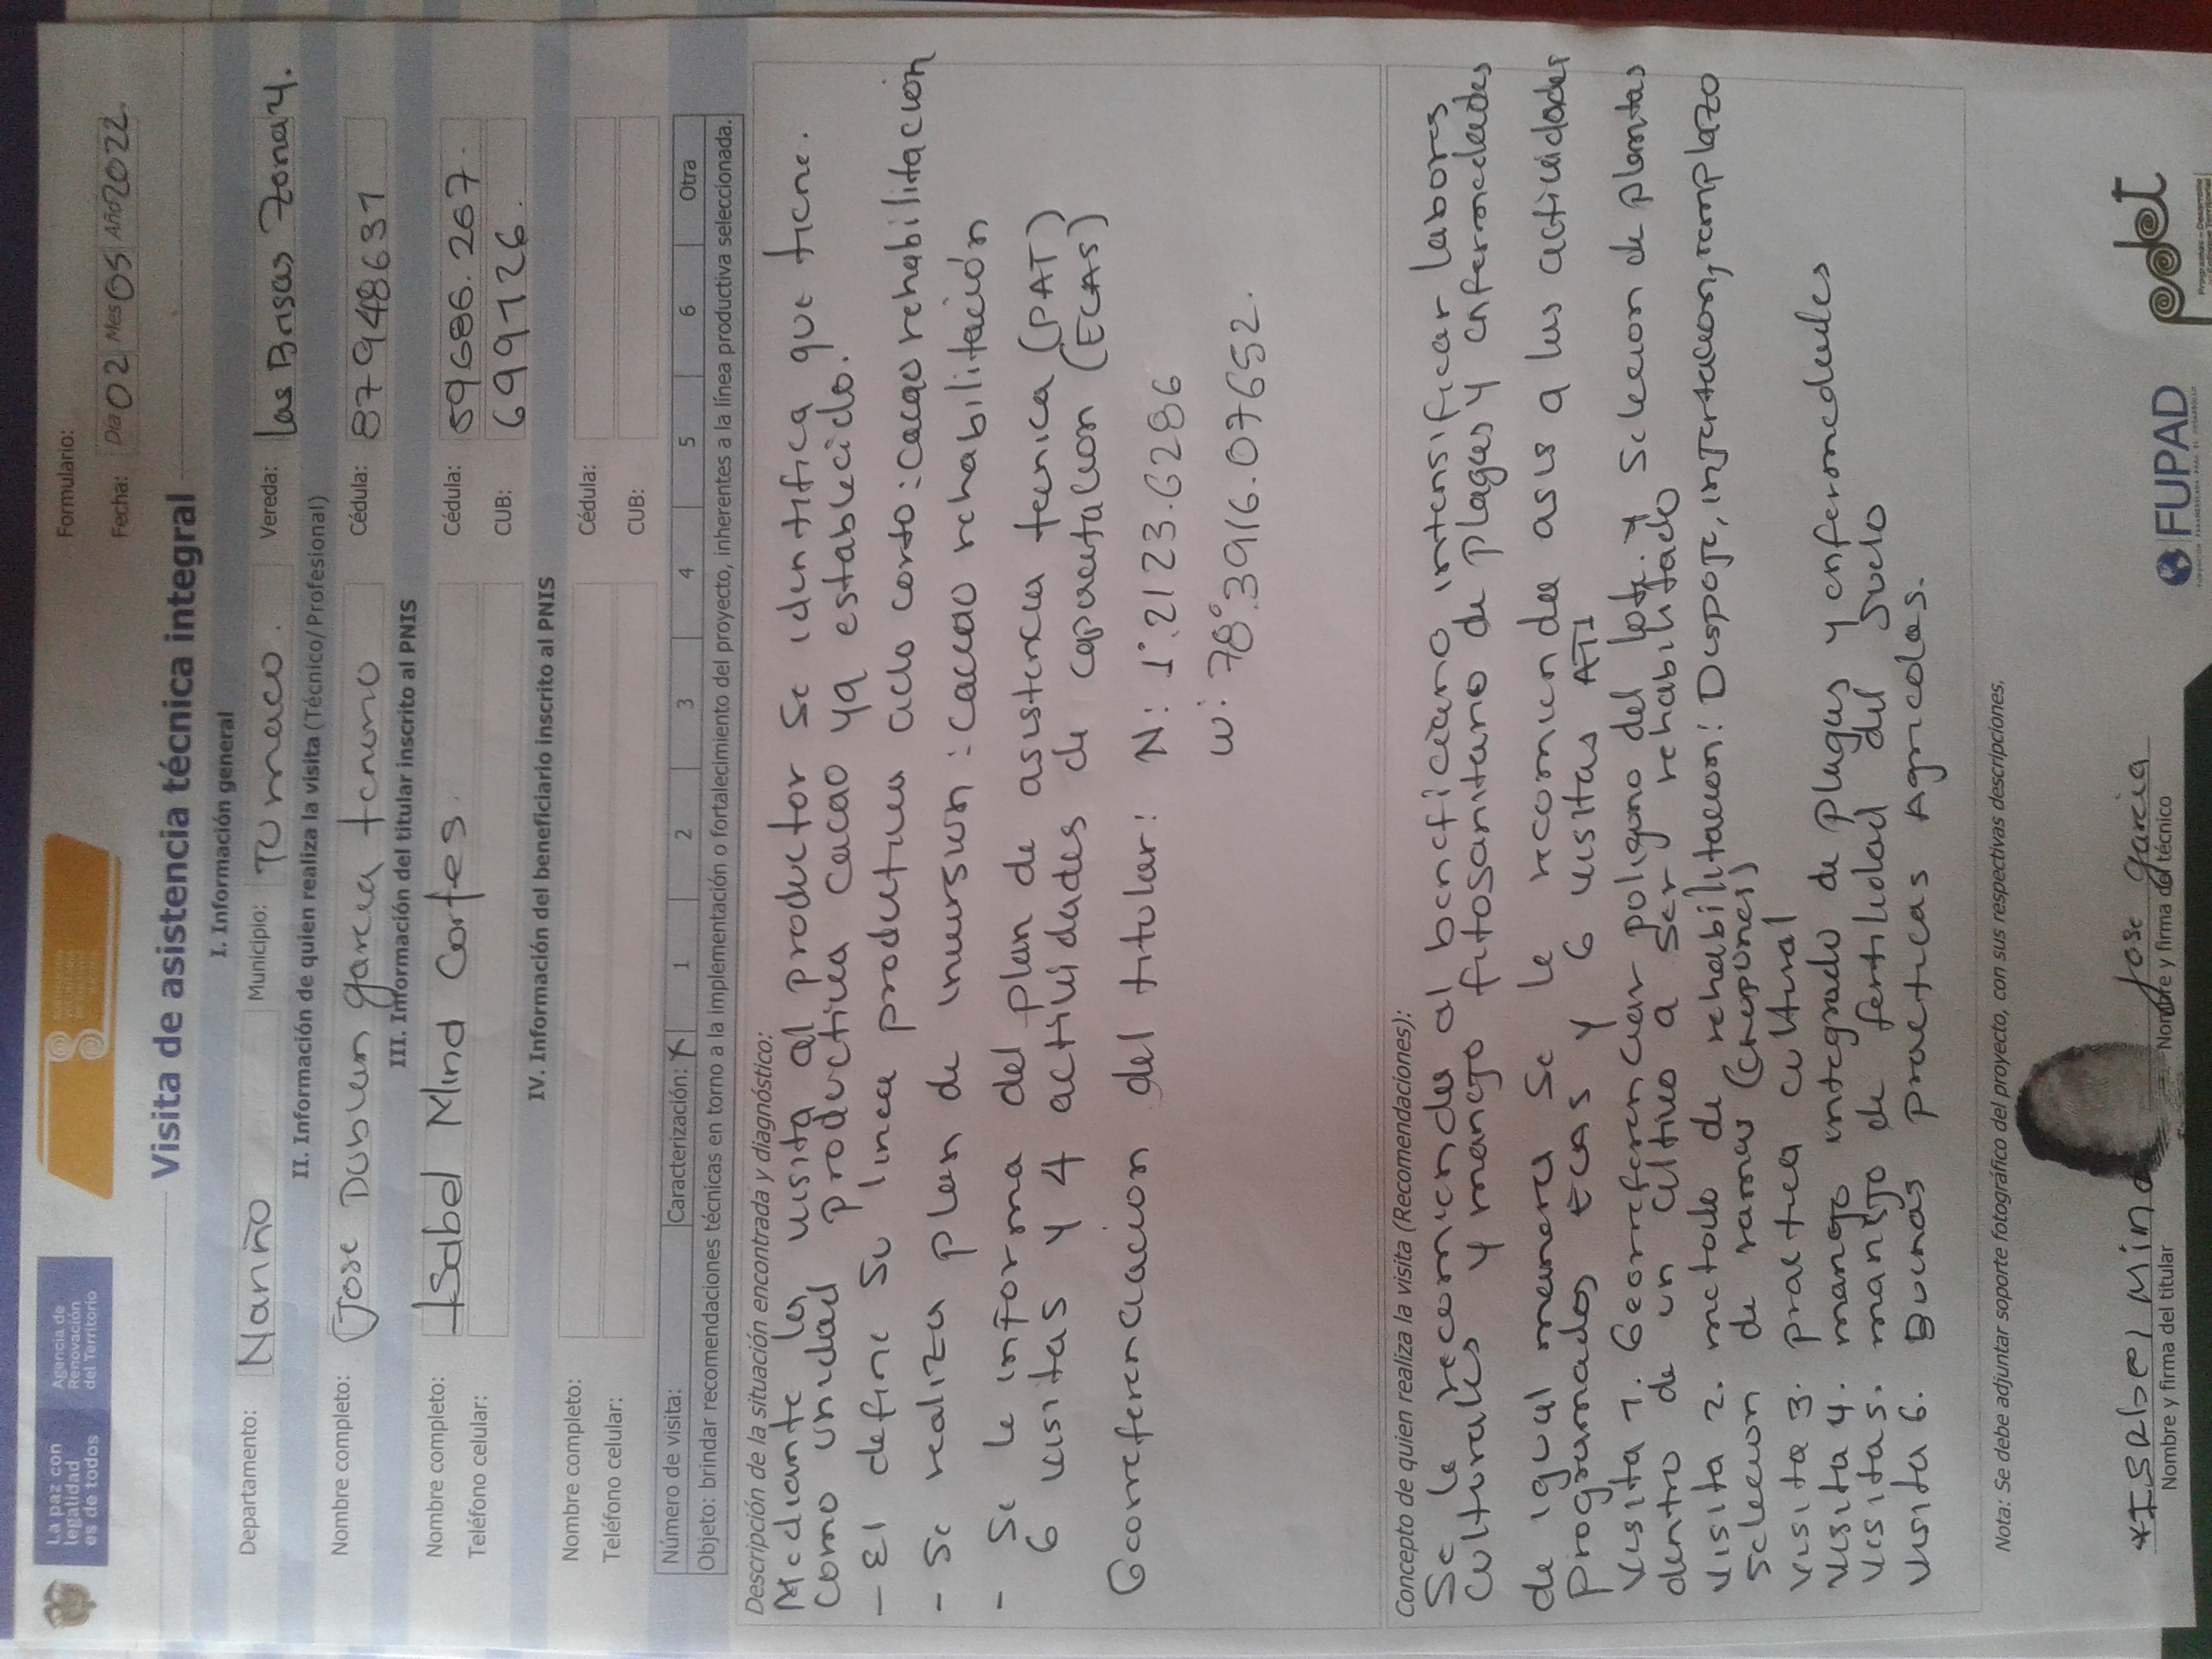 La paz con
legalidad
es de todos
Agencia de
Renovación
del Territorio
Formulario:
Fecha: Día 02 Mes 05 Año 2022.
Visita de asistencia técnica integral
I. Información general
Departamento: Nariño Municipio: TUmaco. Vereda: las Brisas Zona 4.
II. Información de quien realiza la visita (Técnico/ Profesional)
Nombre completo: Jose Dubien garcia tenorio Cédula: 87948631
III. Información del titular inscrito al PNIS
Nombre completo: Isabel Mina Cortes. Cédula: 59686.267.
Teléfono celular: CUB: 699126.
IV. Información del beneficiario inscrito al PNIS
Nombre completo: Cédula:
Teléfono celular: CUB:
Número de visita: Caracterización: X 1 2 3 4 5 6 Otra
Objeto: brindar recomendaciones técnicas en torno a la implementación o fortalecimiento del proyecto, inherentes a la línea productiva seleccionada.
Descripción de la situación encontrada y diagnóstico:
Mediante la visita al productor se identifica que tiene.
como unidad productiva cacao ya establecido.
- El define su linea productiva ciclo corto: cacao rehabilitacion
- Se realiza plan de inversion: cacao rehabilitación
- Se le informa del plan de asistencia tecnica (PAT)
6 visitas y 4 actividades de capacitacion (ECAS)
Georreferenciacion del titular: N: 1°.2123.6286
W: 78°.3916.07652.
Concepto de quien realiza la visita (Recomendaciones):
Se le recomienda al beneficiario intensificar labores
culturales y manejo fitosanitario de plagas y enfermedades
de igual manera se le recomienda asis a las actividades
programadas ECAS y 6 visitas ATI
Visita 1. Georreferenciar poligono del lote. y Seleccion de plantas
dentro de un cultivo a ser rehabilitado
visita 2. metodo de rehabilitacion: Despoje, injertacion, remplazo
seleccion de ramas (chupones)
visita 3. practica cultural
visita 4. manejo integrado de plagas y enfermedades
visita 5. manejo de fertilidad del suelo
visita 6. Buenas practicas Agricolas.
Nota: Se debe adjuntar soporte fotográfico del proyecto, con sus respectivas descripciones.
*ISabel Mina Jose garcia
Nombre y firma del titular Nombre y firma del técnico
FUPAD
pdet